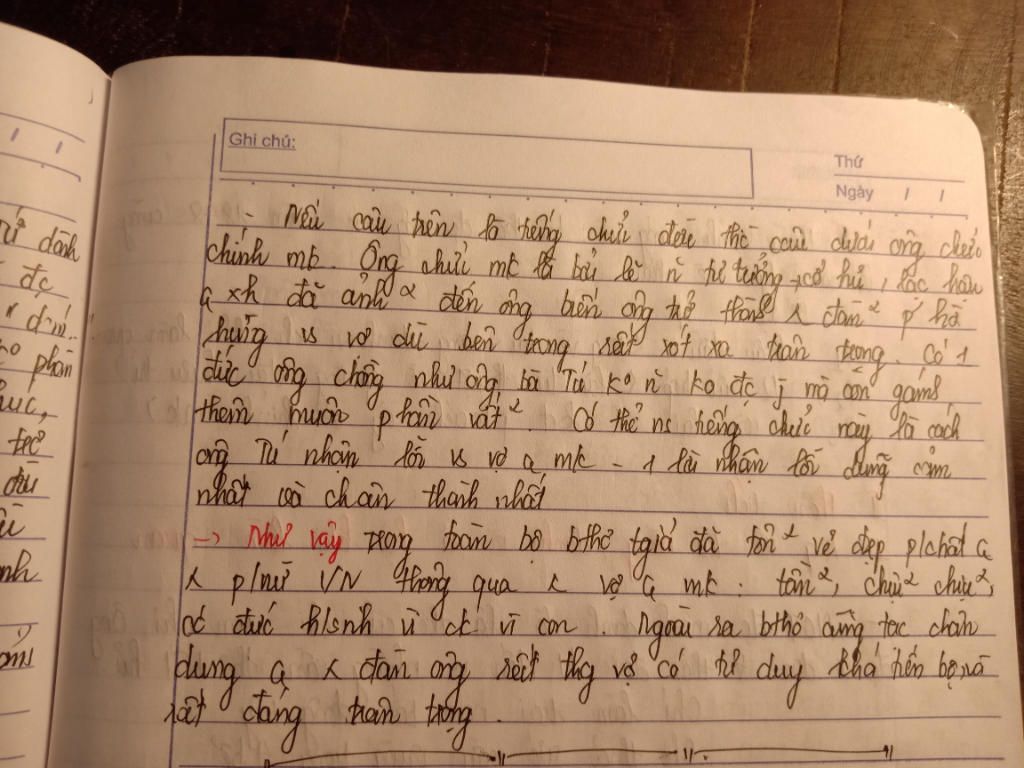 Ghi chú:
Thứ
Ngày / /
- Nếu câu trên là tiếng chửi đời thì câu dưới ông chửi
chính mk. Ông chửi mk là bởi lẽ n² tư tưởng cổ hủ, lạc hậu
q xh đã ảnh² đến ông biến ông trở thành 1 đàn² p' hờ
hững vs vợ dù bên trong rất xót xa trân trọng. Có 1
đức ông chồng như ông bà Tú ko n ko đc j mà còn gánh
thêm muôn phần vất². Có thể ns tiếng chửi này là cách
ông Tú nhận lỗi vs vợ q mk - 1 lời nhận lỗi dũng cảm
nhất và chân thành nhất
-> Như vậy trong toàn bộ bthơ tgiả đã tôn² vẻ đẹp p/chất q
x p/nữ VN thông qua x vợ q mk: tần², chịu² chịu²,
có đức h/sinh vì ck vì con. Ngoài ra bthơ cũng tạc chân
dung q x đàn ông rất thg vợ có tư duy khá tiến bộ và
rất đáng trân trọng.
dành
đc
phần